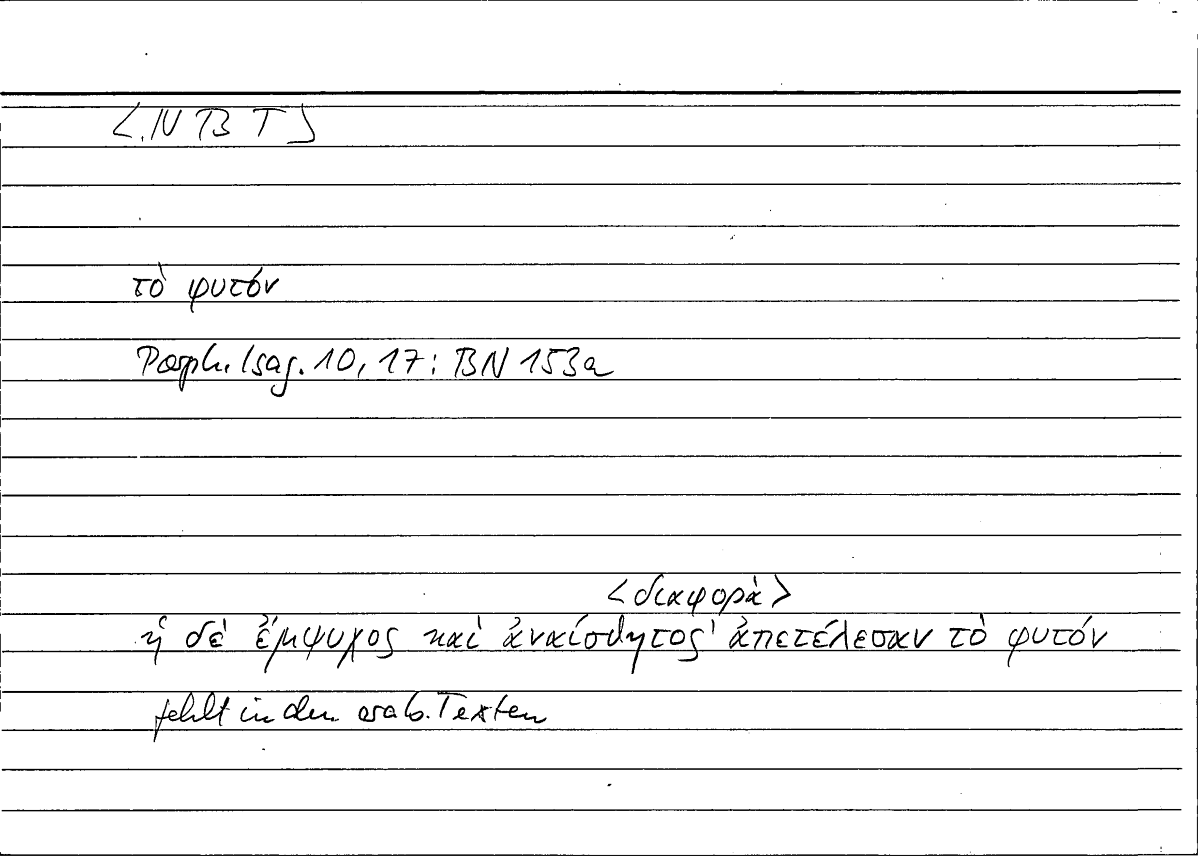 <.NBT>
τὸ φυτόν
Porph. Isag. 10, 17: BN 153a
<διαφορὰ>
ἡ δὲ ἔμψυχος καὶ ἀναίσθητος' ἀπετέλεσαν τὸ φυτόν
fehlt in den arab. Texten